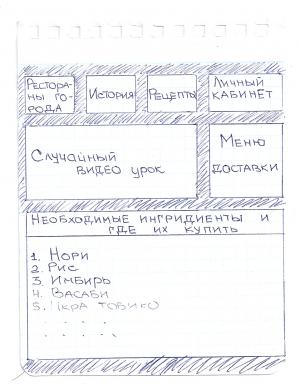 Рестора-
ны го-
рода
История
Рецепты
Личный
кабинет
Случайный
видео урок
Меню
доставки
Необходимые ингридиенты и
где их купить
1. Нори
2. Рис
3. Имбирь
4. Васаби
5. Икра тобико